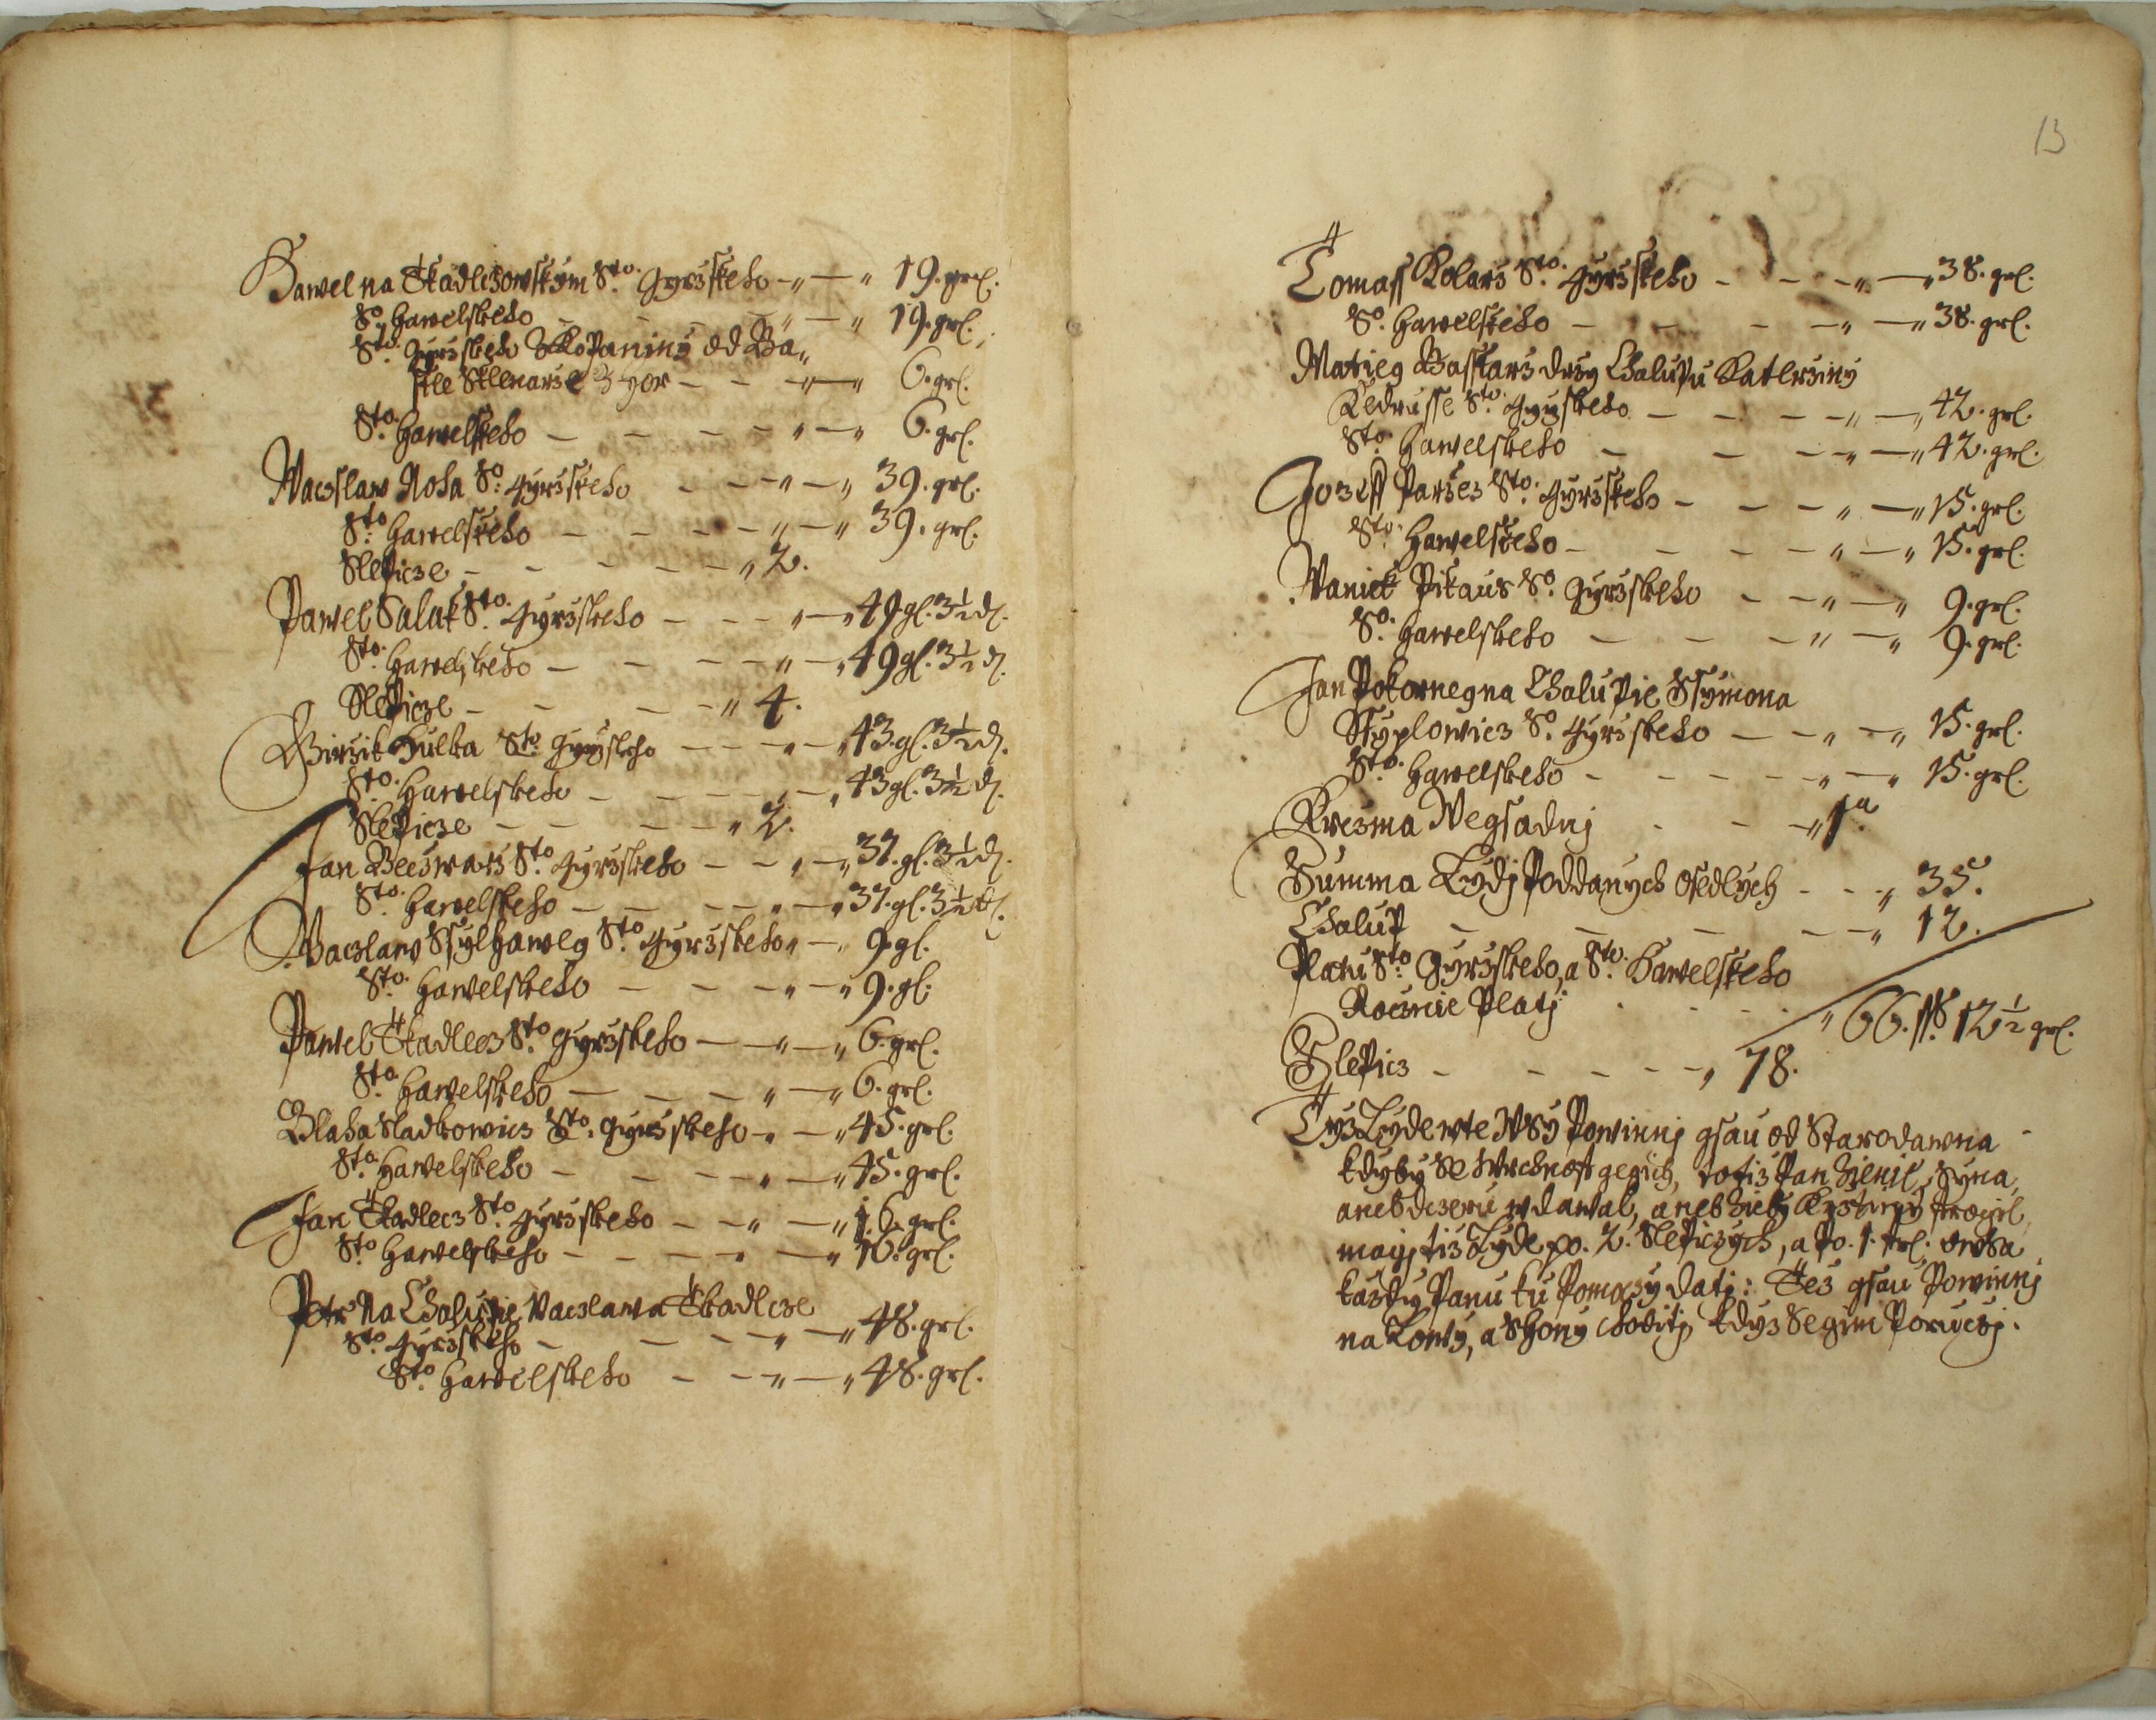 Hawel na Tkadlczowskym Sto. Gyrzskeho 19. grl.
So. Hawelskeho 19. grl.
Sto. Gyrzskeho z Kopaniny od Ba„
stle Sklenarze z Hor 6. grl.
Sto. Hawelskeho 6. grl.
Waczlaw Noha So. Gyrzskeho 39. grl.
Sto. Hawelskeho 39. grl.
Slepicze 2.
Pawel Salak Sto. Gyrzskeho 49 gl. 3½ d.
Sto. Hawelskeho 49 gl. 3½ d.
Slepicze 4.
Girzik Hulka Sto. Gyrzskeho 43. gl. 3½ d.
Sto. Hawelskeho 43 gl. 3½ d.
Slepicze 2.
Jan Beczwarz Sto. Gyrzskeho 37. gl. 3½ d.
Sto. Hawelskeho 37. gl. 3½ d.
Waczlaw Ssylhaweg Sto. Gyrzskeho 9. gl.
Sto. Hawelskeho 9. gl.
Pawel Tkadlecz Sto. Gyrzskeho 6. grl.
Sto. Hawelskeho 6. grl.
Blaha Sladkowicz Sto. Gyrzskeho 45. grl.
Sto. Hawelskeho 45. grl.
Jan Tkadlecz Sto. Gyrzskeho 16. grl.
Sto. Hawelskeho 16. grl.
Petr Na Chalupie Waczlawa Tkadlcze
Sto. Gyrzskeho 48. grl.
Sto. Hawelskeho 48. grl.
13
Tomass Kolarz Sto. Gyrzskeho 38. grl.
So. Hawelskeho 38. grl.
Matieg Basstarz drzy Chalupu Katerziny
Kedrusse Sto. Gyrzskeho 42. grl.
Sto. Hawelskeho 42. grl.
Jozeff Parzez Sto. Gyrzskeho 15. grl.
Sto. Hawelskeho 15. grl.
Waniek Pikaus So. Gyrzskeho 9. grl.
So. Hawelskeho 9. grl.
Jan Pokorneg na Chalupie Ssymona
Styplowicz So. Gyrzskeho 15. grl.
Sto. Hawelskeho 15. grl.
Krczma Wegsadnj 1a.
Summa Lydj Poddanych osedlych 35.
Chalup 12.
Platu Sto. Gyrzskeho, a Sto. Hawelskeho
Rocznie Platj 66. ss. 12½ grl.
Slepicz 78.
Tyz Lyde w te Wsy Powinnj gsau od Starodawna
kdyby se Wrchnost gegich, totiz Pan zienil, Syna,
aneb dczeru wdawal, aneb zieby Krztiny strogil,
magj tiz Lyde po. 2. Slepiczych, a Po. 1. owsa
kazdy Panu ku Pomoczy datj: Tez gsau Powinnj
na Lowy, a Shony choditj kdyz se gim Poruczj.